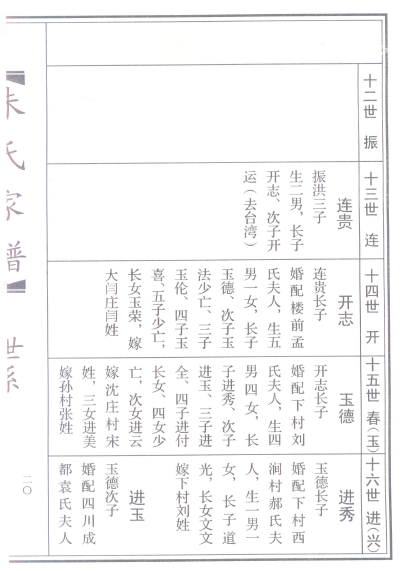 十二世 振
十三世 连
连贵
振洪三子
生二男，长子
开志、次子开
运（去台湾）
十四世 开
开志
连贵长子
婚配楼前孟
氏夫人，生五
男一女，长子
玉德、次子玉
法少亡、三子
玉伦、四子玉
喜、五子少亡，
长女玉荣，嫁
大闫庄闫姓
十五世 春(玉)
玉德
开志长子
婚配下村刘
氏夫人，生四
男四女，长
子进秀、次子
进玉、三子进
全、四子进付
长女、四女少
亡，次女进云
嫁沈庄村宋
姓，三女进美
嫁孙村张姓
十六世 进(兴)
进秀
玉德长子
婚配下村西
涧村郝氏夫
人，生一男一
女，长子道
光，长女文文
嫁下村刘姓
进玉
玉德次子
婚配四川成
都袁氏夫人
朱氏家谱
世系
二〇